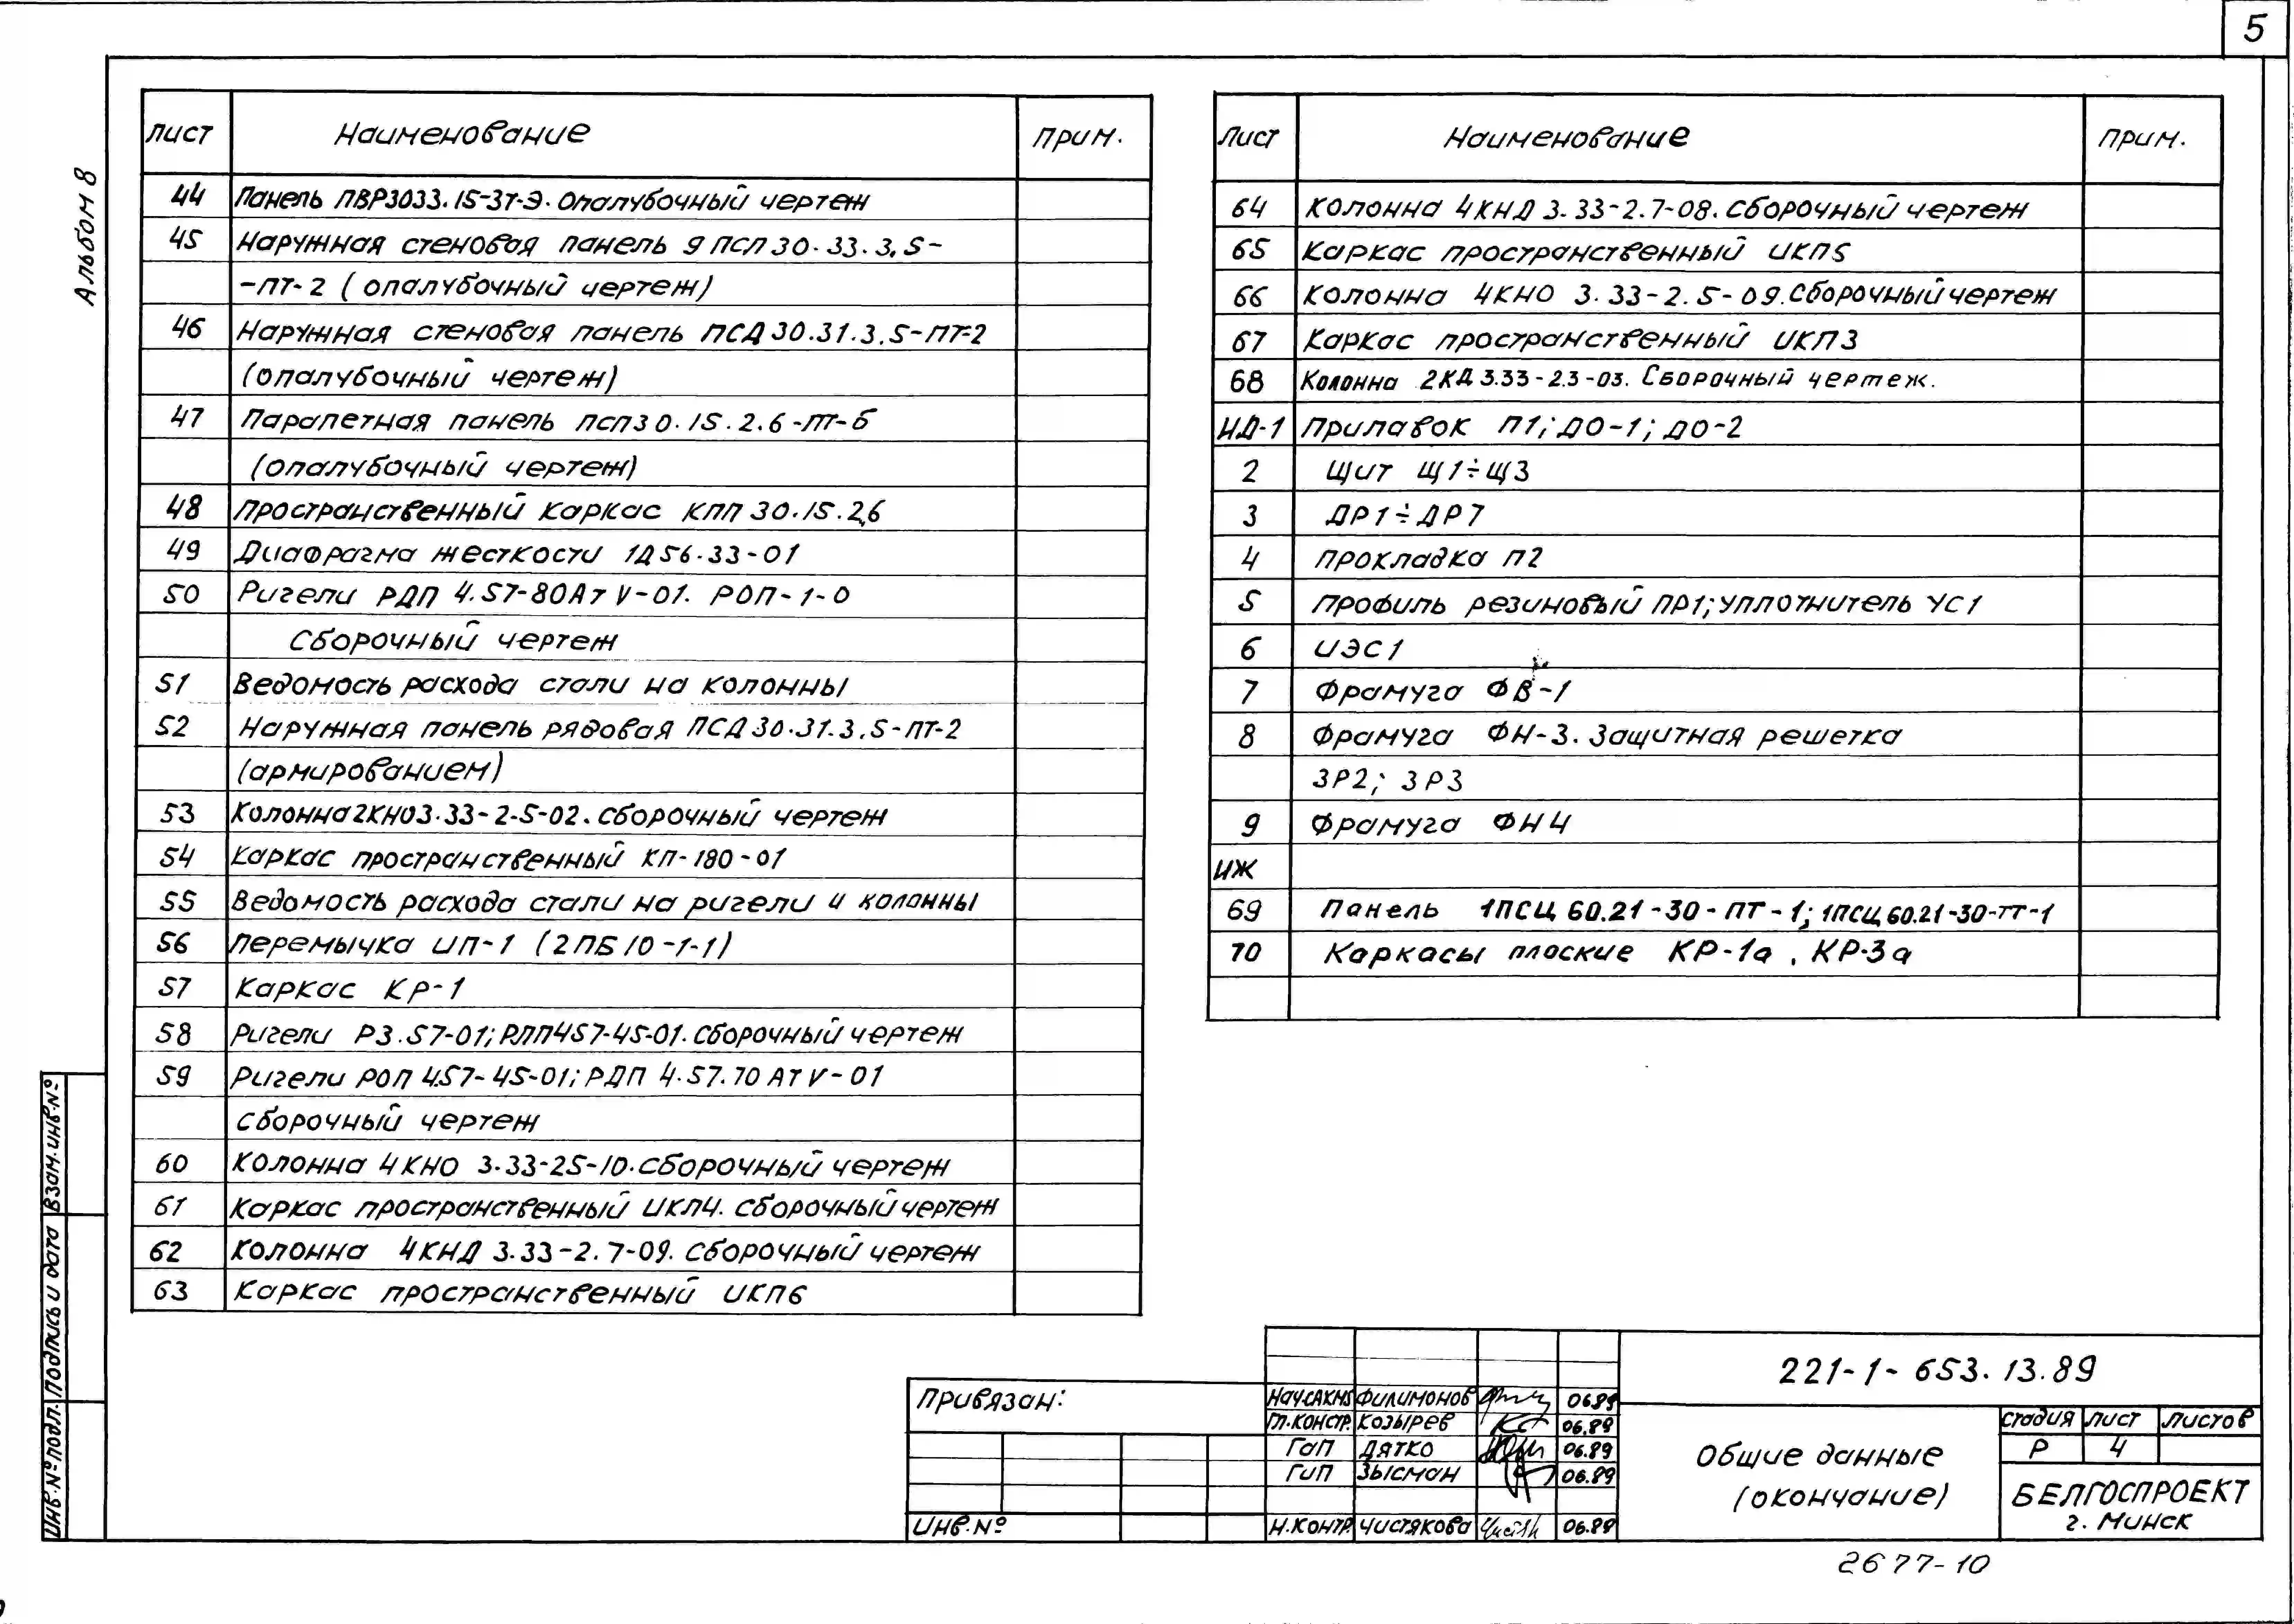 5
Альбом 8
Лист Наименование Прим.
44 Панель ПВР3033.15-3т-Э. Опалубочный чертеж
45 Наружная стеновая панель 9 псп 30.33.3.5-
-пт-2 (опалубочный чертеж)
46 Наружная стеновая панель ПСД 30.31.3.5-ПТ-2
(опалубочный чертеж)
47 Парапетная панель псп30.15.2.6-пт-б
(опалубочный чертеж)
48 Пространственный каркас КПП 30.15.2,6
49 Диафрагма жесткости 1Д56.33-01
50 Ригели РДП 4.57-80Ат V-01. РОП-1-0
Сборочный чертеж
51 Ведомость расхода стали на колонны
52 Наружная панель рядовая ПСД 30.31.3.5-пт-2
(армированием)
53 Колонна 2КНО3.33-2-5-02. сборочный чертеж
54 Каркас пространственный КП-180-01
55 Ведомость расхода стали на ригели и колонны
56 Перемычка ИП-1 (2ПБ10-1-1)
57 Каркас КР-1
58 Ригели Р3.57-01; РЛП457-45-01. Сборочный чертеж
59 Ригели РОП 4.57-45-01; РДП 4.57.70 АТ V-01
Сборочный чертеж
60 Колонна 4КНО 3.33-25-10. сборочный чертеж
61 Каркас пространственный ИКП4. сборочный чертеж
62 Колонна 4КНД 3.33-2.7-09. сборочный чертеж
63 Каркас пространственный ИКП6
Лист Наименование Прим.
64 Колонна 4КНД 3.33-2.7-08. сборочный чертеж
65 Каркас пространственный ИКП5
66 Колонна 4КНО 3.33-2.5-09. Сборочный чертеж
67 Каркас пространственный ИКП3
68 Колонна 2КД 3.33-2.3-03. Сборочный чертеж.
ИД-1 Прилавок П1; ДО-1; ДО-2
2 Щит Щ1÷Щ3
3 ДР1÷ДР7
4 Прокладка П2
5 Профиль резиновый ПР1; уплотнитель УС1
6 ИЭС1
7 Фрамуга ФВ-1
8 Фрамуга ФН-3. Защитная решетка
ЗР2; ЗР3
9 Фрамуга ФН4
ИЖ
69 Панель 1ПСЦ 60.21-30-ПТ-1; 1ПСЦ 60.21-30-ТТ-1
70 Каркасы плоские КР-1а, КР-3а
Взам.инв.№
Подпись и дата
Инв.№подл.
Привязан:
Инв.№
Нач.САКМ5 Филимонов 06.89
Гл.констр. Козырев 06.89
ГАП Дятко 06.89
ГИП Зысман 06.89
Н.контр Чистякова 06.89
221-1-653.13.89
Общие данные
(окончание)
стадия лист листов
Р 4
БЕЛГОСПРОЕКТ
г. Минск
2677-10